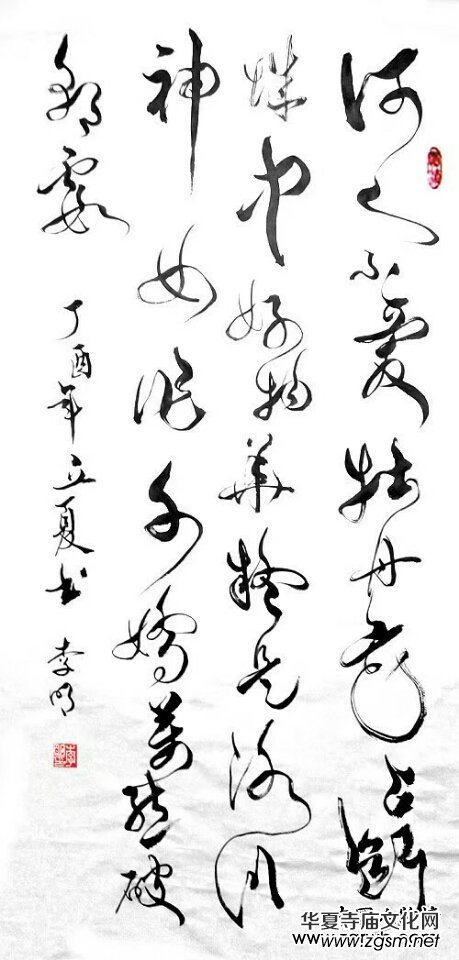 何人不愛牡丹花占斷
城中好物華疑是洛川
神女作千嬌萬態破
朝霞 丁酉年立夏书 李明
华夏寺庙文化网
www.zgsm.net